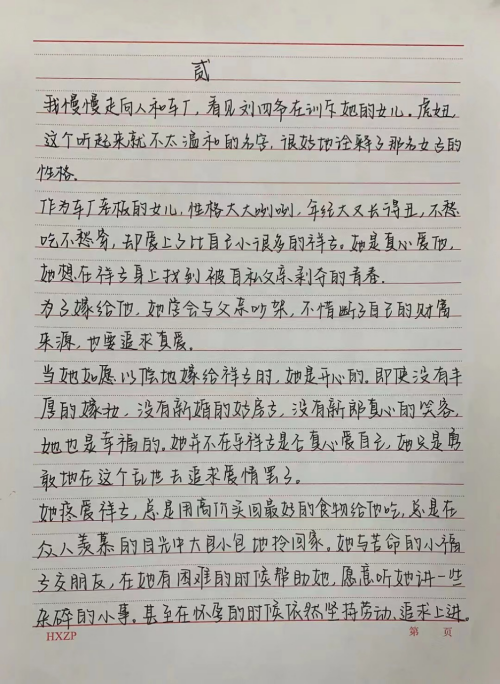 贰
我慢慢走向人和车厂，看见刘四爷在训斥她的女儿。虎妞
这个听起来就不太温和的名字，很好地诠释了那名女子的
性格。
作为车厂老板的女儿，性格大大咧咧，年纪大又长得丑，不愁
吃不愁穿，却爱上了比自己小很多的祥子。她是真心爱他，
她想在祥子身上找到被自私父亲剥夺的青春.
为了嫁给他，她宁会与父亲吵架，不惜断了自己的财富
来源，也要追求真爱。
当她如愿以偿地嫁给祥子时，她是开心的。即使没有丰
厚的嫁妆，没有新婚的好房子，没有新郎真心的笑容，
她也是幸福的。她并不在乎祥子是否真心爱自己，她只是勇
敢地在这个乱世去追求爱情罢了。
她疼爱祥子，总是用高价买回最好的食物给他吃，总是在
众人羡慕的目光中大包小包地拎回家。她与苦命的小福
子交朋友，在她有困难的时候帮助她，愿意听她讲一些
杂碎的小事。甚至在怀孕的时候依然坚持劳动、追求上进。
HXZP 第 页